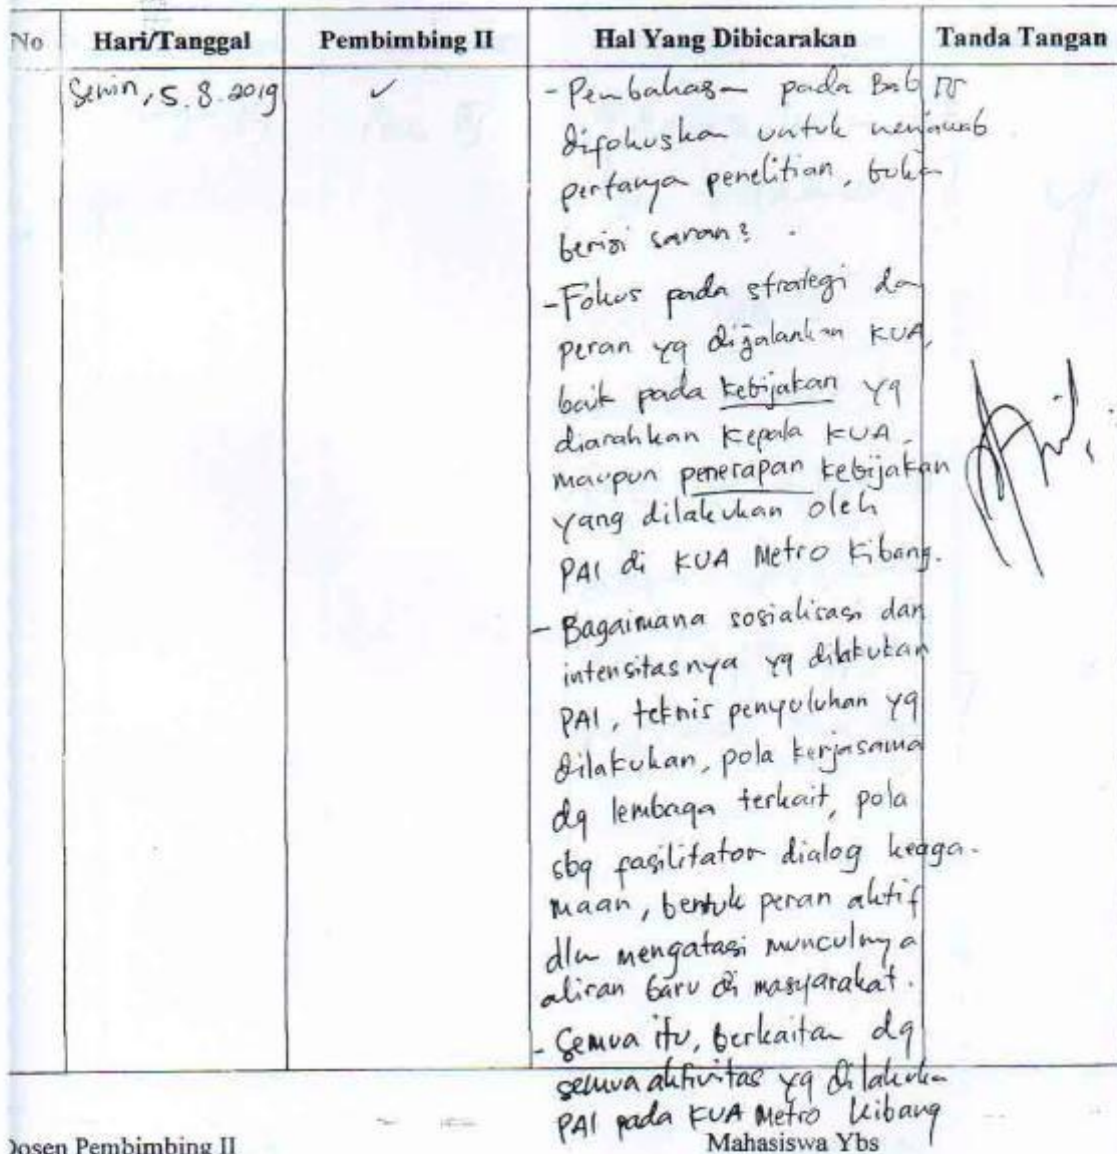 No Hari/Tanggal Pembimbing II Hal Yang Dibicarakan Tanda Tangan
Senin, 5.8.2019 ✓
- Pembahasan pada Bab IV
difokuskan untuk menjawab
pertanya penelitian, bukan
berisi saran2.
- Fokus pada strategi dan
peran yg dijalankan KUA,
baik pada kebijakan yg
diarahkan Kepala KUA.
maupun penerapan kebijakan
yang dilakukan oleh
PAI di KUA Metro Kibang.
- Bagaimana sosialisasi dan
intensitasnya yg dilakukan
PAI, teknis penyuluhan yg
dilakukan, pola kerjasama
dg lembaga terkait, pola
sbg fasilitator dialog keaga-
maan, bentuk peran aktif
dlm mengatasi munculnya
aliran baru di masyarakat.
- Semua itu, berkaitan dg
semua aktivitas yg dilakukan
PAI pada KUA Metro Kibang
Dosen Pembimbing II Mahasiswa Ybs